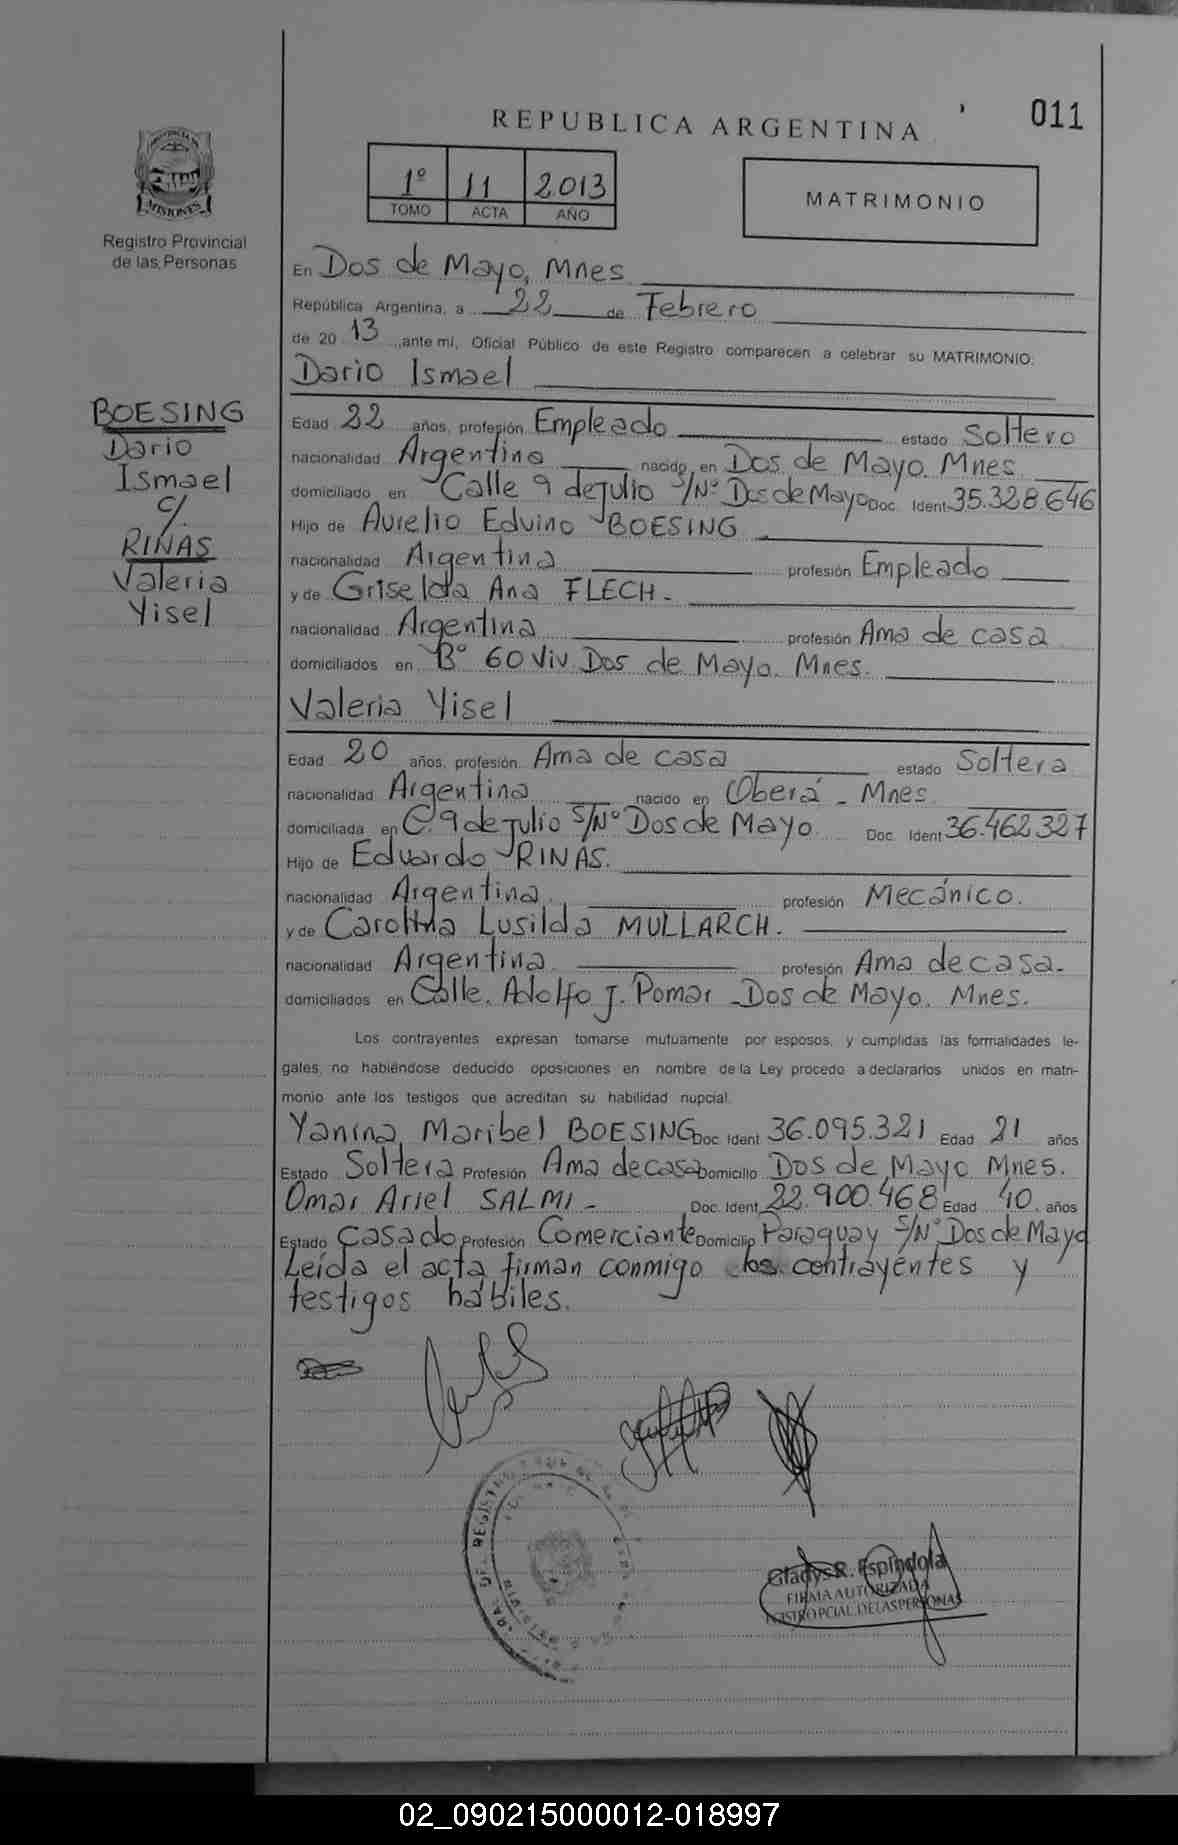 REPUBLICA ARGENTINA
011
1º 11 2013
TOMO ACTA AÑO
MATRIMONIO
MISIONES
Registro Provincial
de las Personas
BOESING
Dario
Ismael
c/.
RINAS
Valeria
Yisel
En Dos de Mayo, Mnes
República Argentina, a 22 de Febrero
de 20 13 ,ante mí, Oficial Público de este Registro comparecen a celebrar su MATRIMONIO:
Dario Ismael
Edad 22 años, profesión Empleado estado Soltero
nacionalidad Argentina nacido en Dos de Mayo. Mnes
domiciliado en Calle 9 de Julio S/Nº Dos de Mayo Doc. Ident 35.328.646
Hijo de Aurelio Edvino BOESING
nacionalidad Argentina profesión Empleado
y de Griselda Ana FLECH.
nacionalidad Argentina profesión Ama de casa
domiciliados en Bº 60 Viv Dos de Mayo. Mnes.
Valeria Yisel
Edad 20 años, profesión Ama de casa estado Soltera
nacionalidad Argentina nacido en Oberá - Mnes
domiciliada en C. 9 de Julio S/Nº Dos de Mayo Doc. Ident 36.462.327
Hijo de Eduardo RINAS.
nacionalidad Argentina profesión Mecánico.
y de Carolina Lusilda MULLARCH.
nacionalidad Argentina profesión Ama de casa.
domiciliados en Calle. Adolfo J. Pomar - Dos de Mayo. Mnes.
Los contrayentes expresan tomarse mutuamente por esposos, y cumplidas las formalidades le-
gales, no habiéndose deducido oposiciones en nombre de la Ley procedo a declararlos unidos en matri-
monio ante los testigos que acreditan su habilidad nupcial.
Yanina Maribel BOESING Doc. Ident 36.095.321 Edad 21 años
Estado Soltera Profesión Ama de casa Domicilio Dos de Mayo Mnes.
Omar Ariel SALMI - Doc. Ident 22.900.468 Edad 40. años
Estado Casado Profesión Comerciante Domicilio Paraguay S/Nº Dos de Mayo
Leída el acta firman conmigo los contrayentes y
testigos hábiles.
Gladys R. Espindola
FIRMA AUTORIZADA
REGISTRO PCIAL. DE LAS PERSONAS
02_090215000012-018997